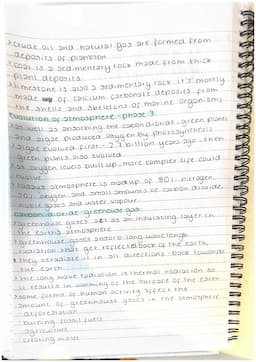 >crude oil and natural gas are formed from
deposits of plankton
>coal is a sedimentary rock made from thick
plant deposits
>limestone is also a sedimentary rock, it's mostly
made of calcium carbonate deposits from
the shells and skeletons of marine organisms
evolution of atmosphere - phase 3
>as well as absorbing the carbon dioxide, green plants
and algae produced oxygen by photosynthesis
>algae evolved first - 2.7 billion years ago, then
green plants also evolved
>as oxygen levels built up, more complex life could
evolve
>todays atmosphere is made up of 80% nitrogen,
20% oxygen and small amounts of carbon dioxide,
noble gases and water vapour
carbon dioxide - greenhouse gas
>greenhouse gases act as an insulating layer in
the earths atmosphere
>greenhouse gases absorb long wavelength
radiation that get reflected back off the earth,
>they reradiate it in all directions - back towards
the earth
>the long wave radiation is thermal radiation so
it results in warming of the surface of the earth
>some forms of human activity affect the
amount of greenhouse gases in the atmosphere
deforestation
burning fossil fuels
agriculture
creating waste